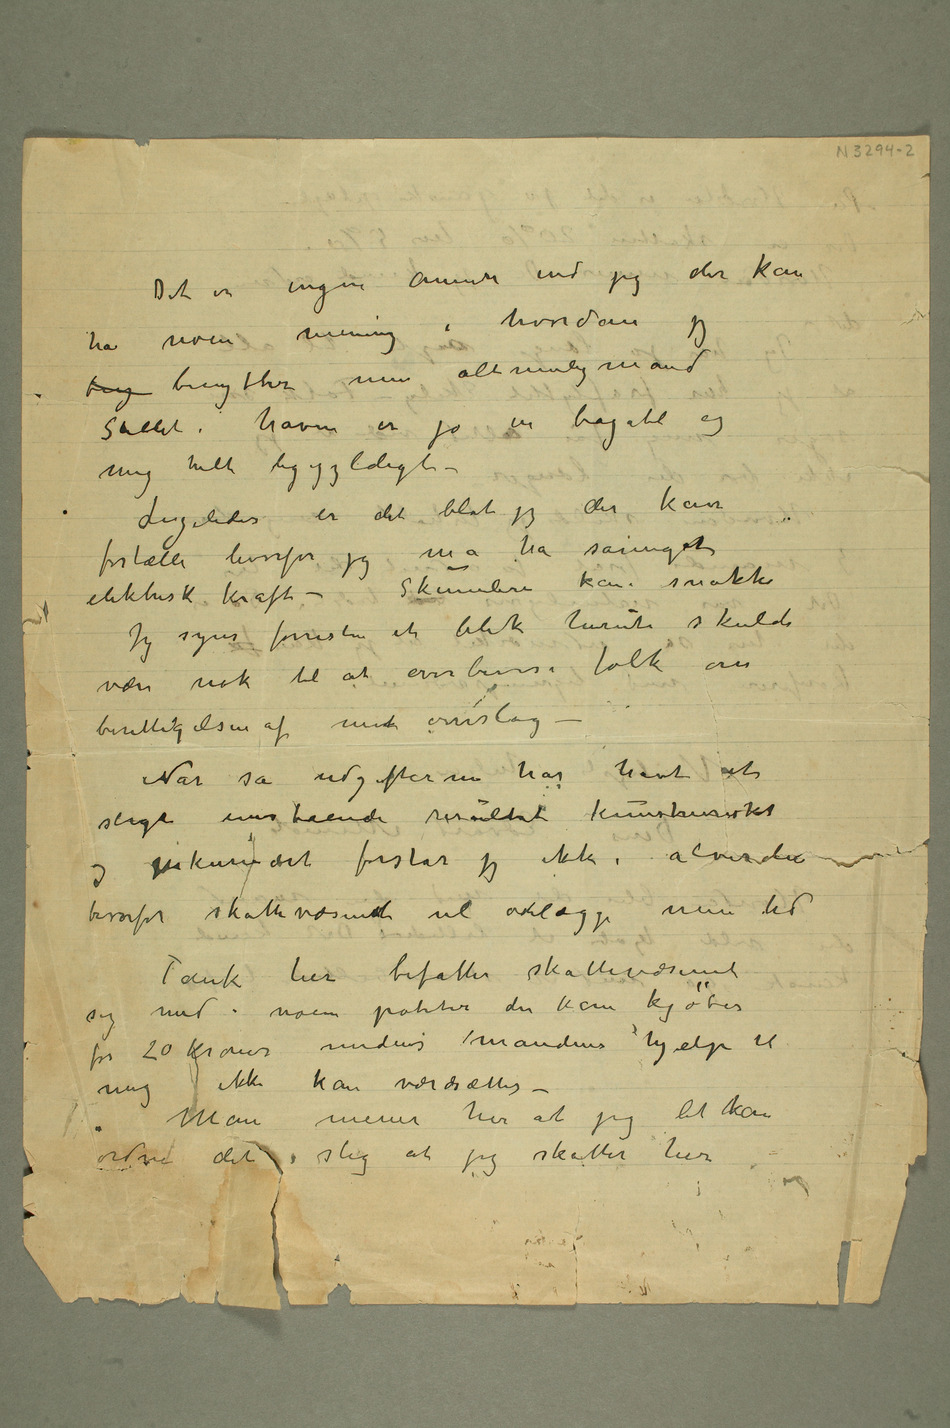 N 3294-2
Det er ingen annen end jeg der kan
ha noen mening i hvordan jeg
beny benytter min altmuligmand
Stellet i haven er jo en bagatel og
mig helt ligegyldigt –
Ligeledes er det blot jeg der kan
fortælle hvorfor jeg må ha så meget
elektrisk kraft – Skinnbere kan snakke
Jeg synes forresten et blik herute skulde
være nok til at overbevise folk om
berettigelsen af mit overslag –
Når så udgifterne har havt et
sligt enestaaende resultat kunstnerisk
og pekuniært forstår jeg ikke i alverden
hvorfor skattevæsenet vil odelægge min tid
Tænk her befatter skattevæsenet
sig med noen poteter der kan kjøbes
for 20 kroner medens mandens hjelp til
mig ikke kan værdsættes –
Man mener her at jeg let kan
ordne det slig at jeg skatter her